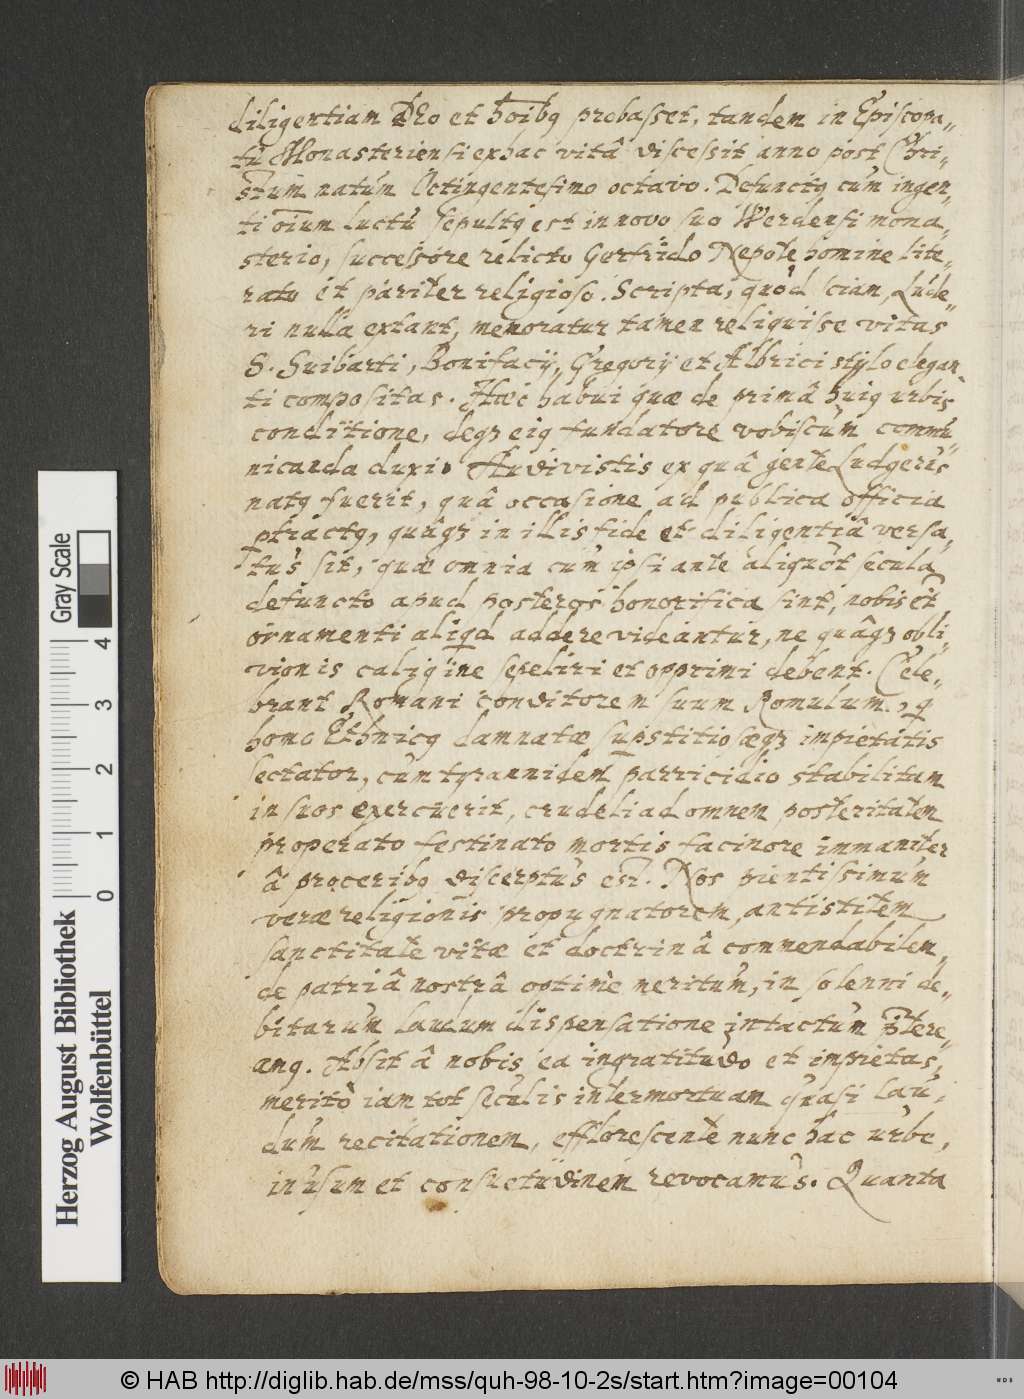 diligentiam DEo et hoibq probasset, tandem in Episcopa„
tu Monasteriensi ex hac vitâ discessit anno post Chri„
stum natum Octingentesimo octavo. Defunctq cum ingen„
ti oium luctu sepultq est in novo suo Werdensi mona„
sterio, successore relicto Gerfrido Nepote homine lite„
rato et pariter religioso. Scripta, quod sciam, Lude„
ri nulla extant, memoratur tamen reliquisse vitas
S. Suibarti, Bonifacij, Gregorij et Albrici stylo elegan„
ti compositas. Hæc habui quæ de primâ huiq urbis
conditione, deqz eiq fundatore vobiscum commu„
nicanda duxi. Audivistis ex quâ gente Ludgerus
natq fuerit, quâ occasione ad publica officia
ptractq, quâqz in illis fide et diligentiâ versa„
tus sit, quæ omnia cum ipsi ante aliquot secula
defuncto apud posteros honorifica sint, nobis et
ornamenti aliqd addere videantur, ne quâqz obli„
vionis caligine sepeliri et opprimi debent. Cele„
brant Romani conditorem suum Romulum, q
homo Ethnicq damnatæ supstitiosæqz impietatis
sectator, cum tyrannidem parricidio stabilitam
in suos exercuerit, crudeli ad omnem posteritatem
properato festinato mortis facinore immaniter
â proceribq discerptus est. Nos pientissimum
veræ religionis propugnatorem, antistitem
sanctitate vitæ et doctrinâ commendabilem,
de patriâ nostrâ optime meritum, in solenni de„
bitarum laudum dispensatione intactum ptere„
amq. Absit â nobis ea ingratitudo et impietas,
meritò iam tot seculis intermortuam quasi lau„
dum recitationem, efflorescente nunc hac urbe,
in usum et consuetudinem revocamus. Quanta
Herzog August Bibliothek
Wolfenbüttel
Gray Scale
0 1 2 3 4
© HAB http://diglib.hab.de/mss/quh-98-10-2s/start.htm?image=00104